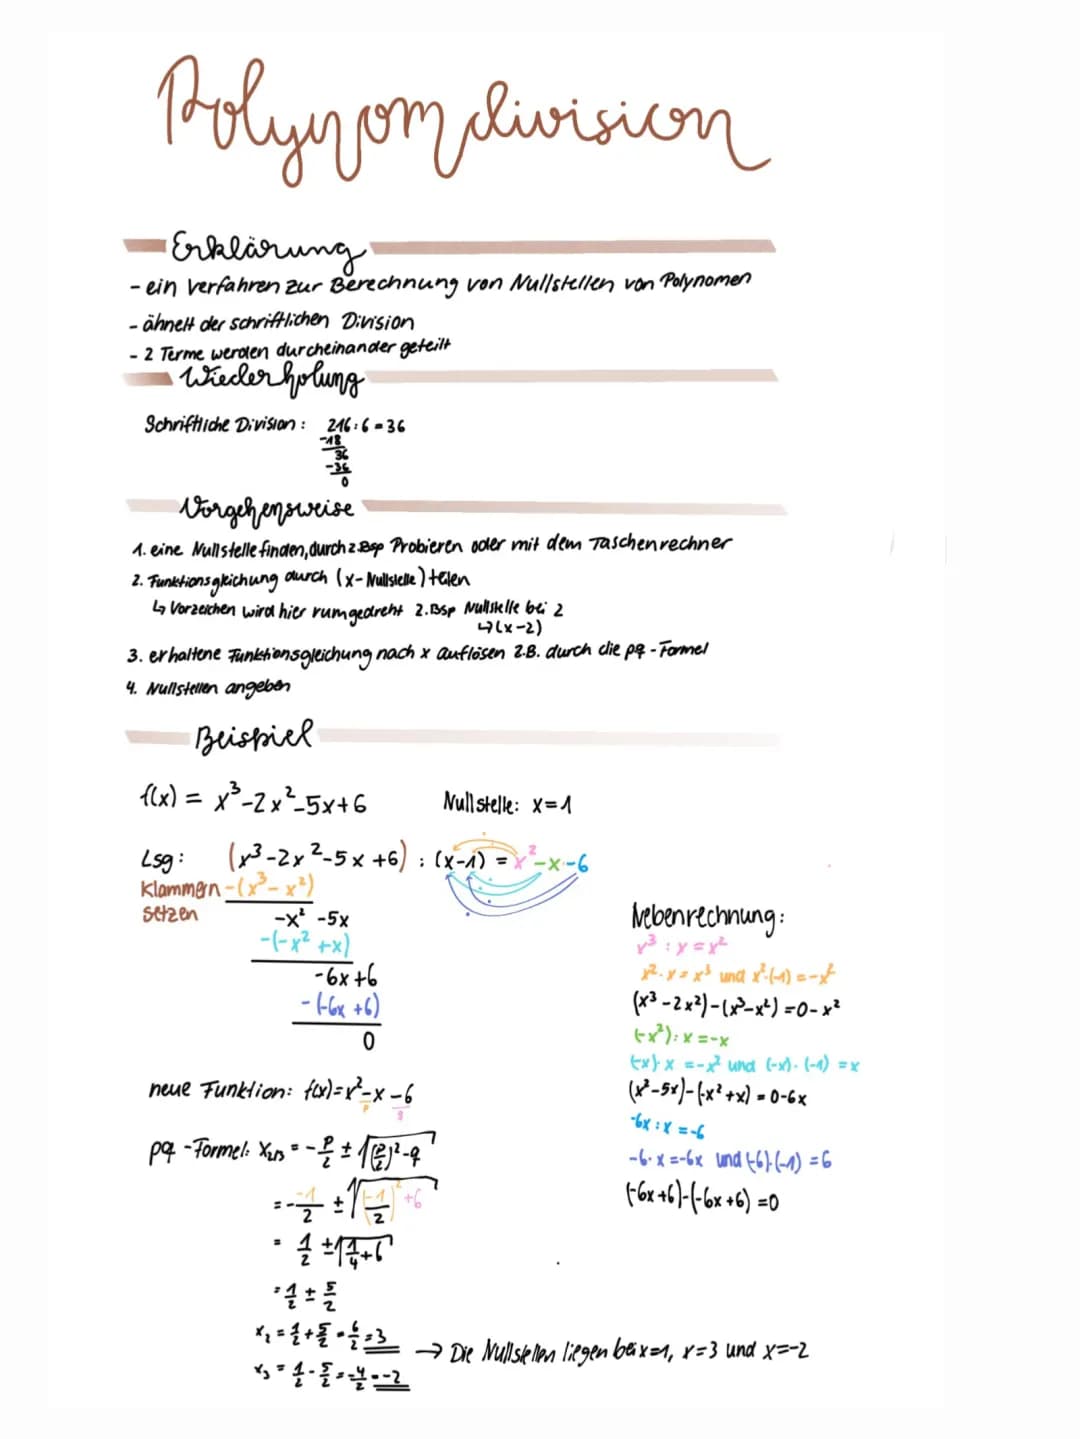 Polynomdivision
Erklärung
- ein Verfahren zur Berechnung von Nullstellen von Polynomen
- ähnelt der schriftlichen Division
- 2 Terme werden durcheinander geteilt
Wiederholung
Schriftliche Division: 216:6=36
-18
36
-36
0
Vorgehensweise
1. eine Nullstelle finden, durch z.Bsp Probieren oder mit dem Taschenrechner
2. Funktionsgleichung durch (x-Nullstelle) teilen
↳ Vorzeichen wird hier rumgedreht z.Bsp Nullstelle bei 2
↳(x-2)
3. erhaltene Funktionsgleichung nach x auflösen z.B. durch die pq-Formel
4. Nullstellen angeben
Beispiel
f(x) = x³-2x²-5x+6 Nullstelle: x=1
Lsg: (x³-2x²-5x+6) : (x-1) = x²-x-6
Klammern -(x³-x²)
setzen -x² -5x
-(-x² +x)
-6x+6
-(-6x +6)
0
Nebenrechnung:
x³:x=x²
x²·x=x³ und x²·(-1)=-x²
(x³-2x²)-(x³-x²)=0-x²
(-x²):x=-x
(-x)·x =-x² und (-x)·(-1)=x
(x²-5x)-(-x²+x)=0-6x
-6x:x=-6
-6·x=-6x und (-6)·(-1)=6
(-6x+6)-(-6x+6)=0
neue Funktion: f(x)=x²-x-6
p q
pq-Formel: x₂/₃ = -p/2 ± √((p/2)²-q)
= - -1/2 ± √((-1/2)²+6)
= 1/2 ± √(1/4+6)
= 1/2 ± 5/2
x₂ = 1/2+5/2=6/2=3 → Die Nullstellen liegen bei x=1, x=3 und x=-2
x₃ = 1/2-5/2=-4/2=-2